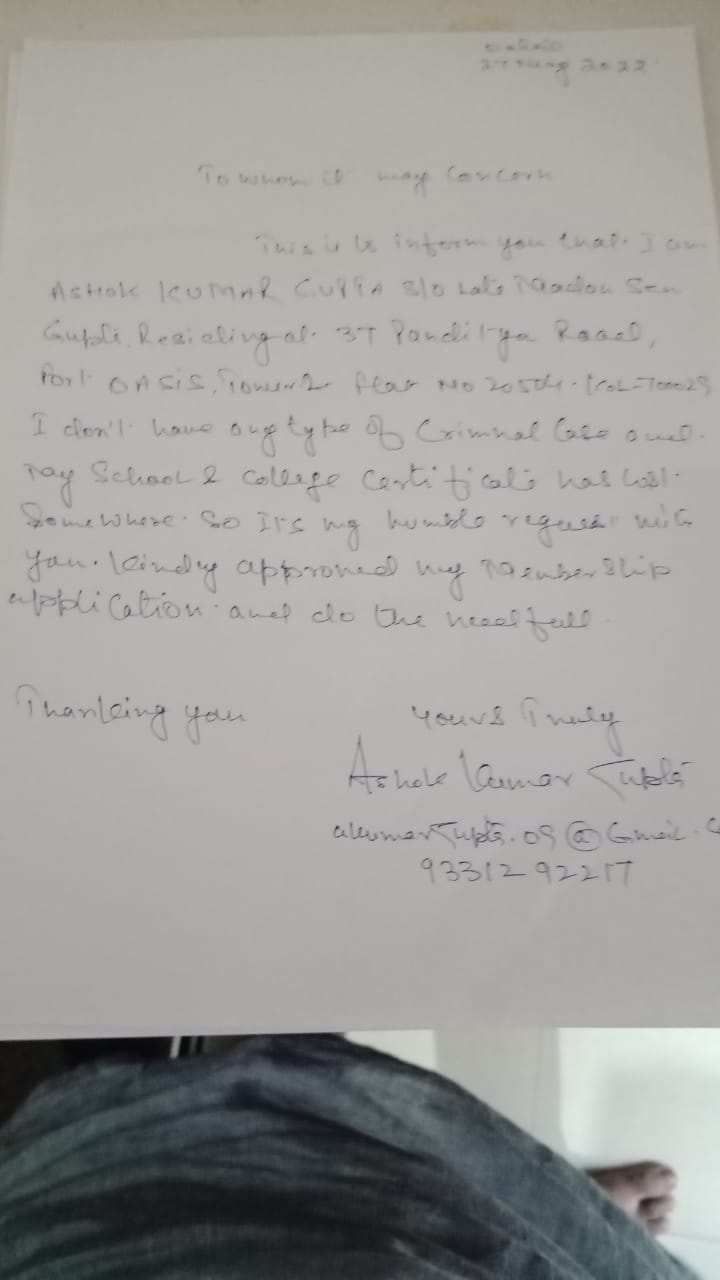 2022
To whom it may Concern
This is to inform you that I am
ASHOK KUMAR GUPTA S/O Late Madan Sen
Gupta, Residing at. 37 Panditya Road,
Fort OASIS, Tower 2 flat No 20504. Kol-700029
I don't have any type of Criminal Case and
my School & College Certificate has lost
Somewhere. So It's my humble request with
you. Kindly approved my Membership
application and do the needfull.
Thanking you
Yours Truly
Ashok Kumar Gupta
akumargupta.09@Gmail.
9331292217